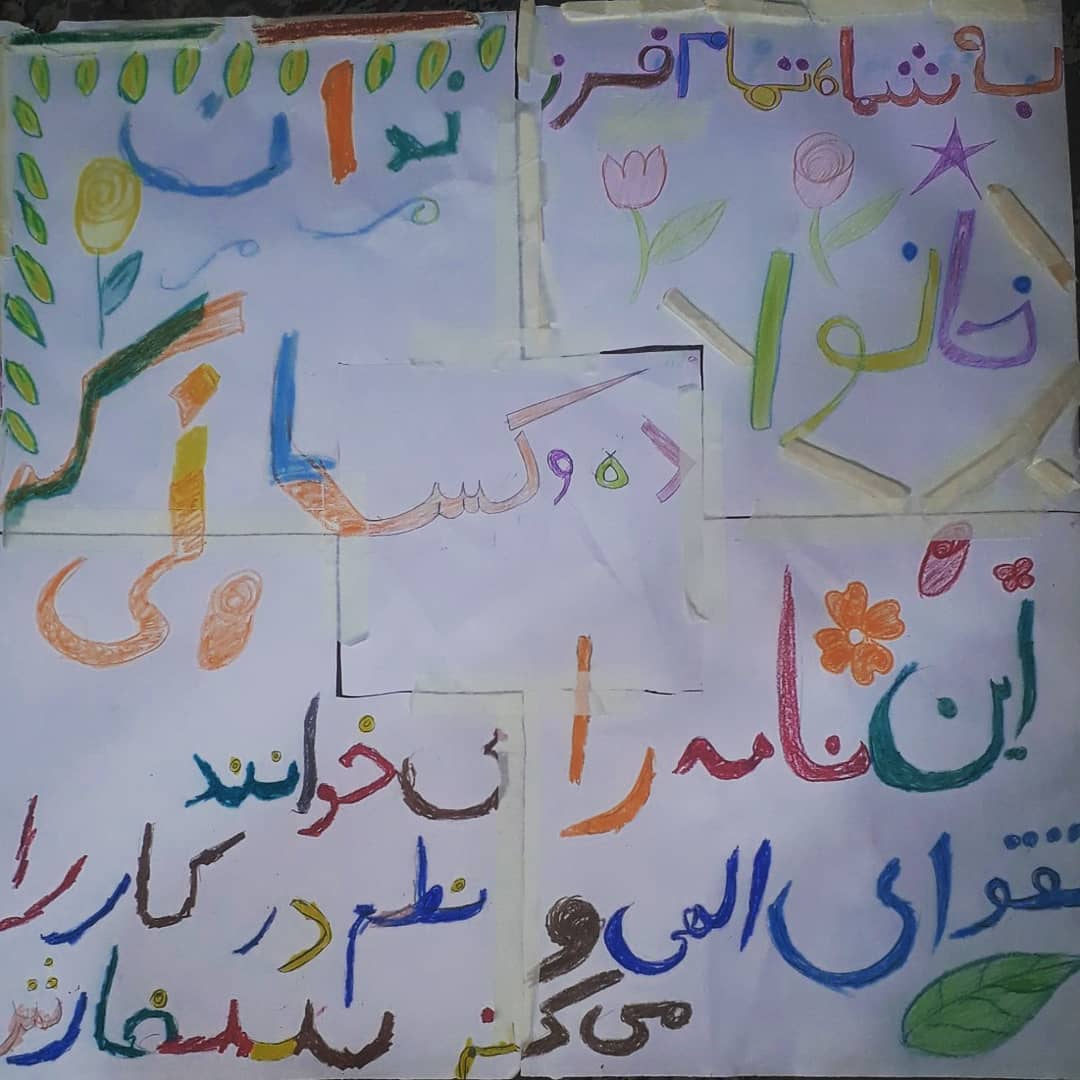 به شما، تمام فرزندان
خانواده و کسانی کـ
این نامه را ی خوانند
تقوای الهی و نظم در کار را
می کنـ سفارش